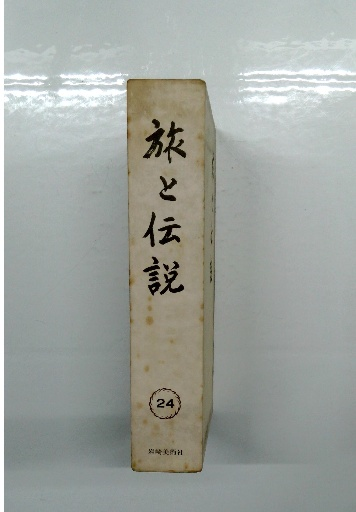 旅と伝説
24
岩崎美術社